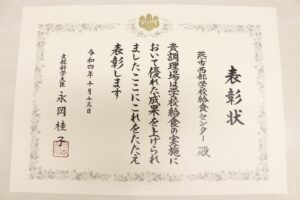 表彰状
燕市西部学校給食センター 殿
貴調理場は学校給食の実施に
おいて優れた成果を上げられ
ましたここにこれをたたえ
表彰します
令和四年十月十三日
文部科学大臣 永岡桂子